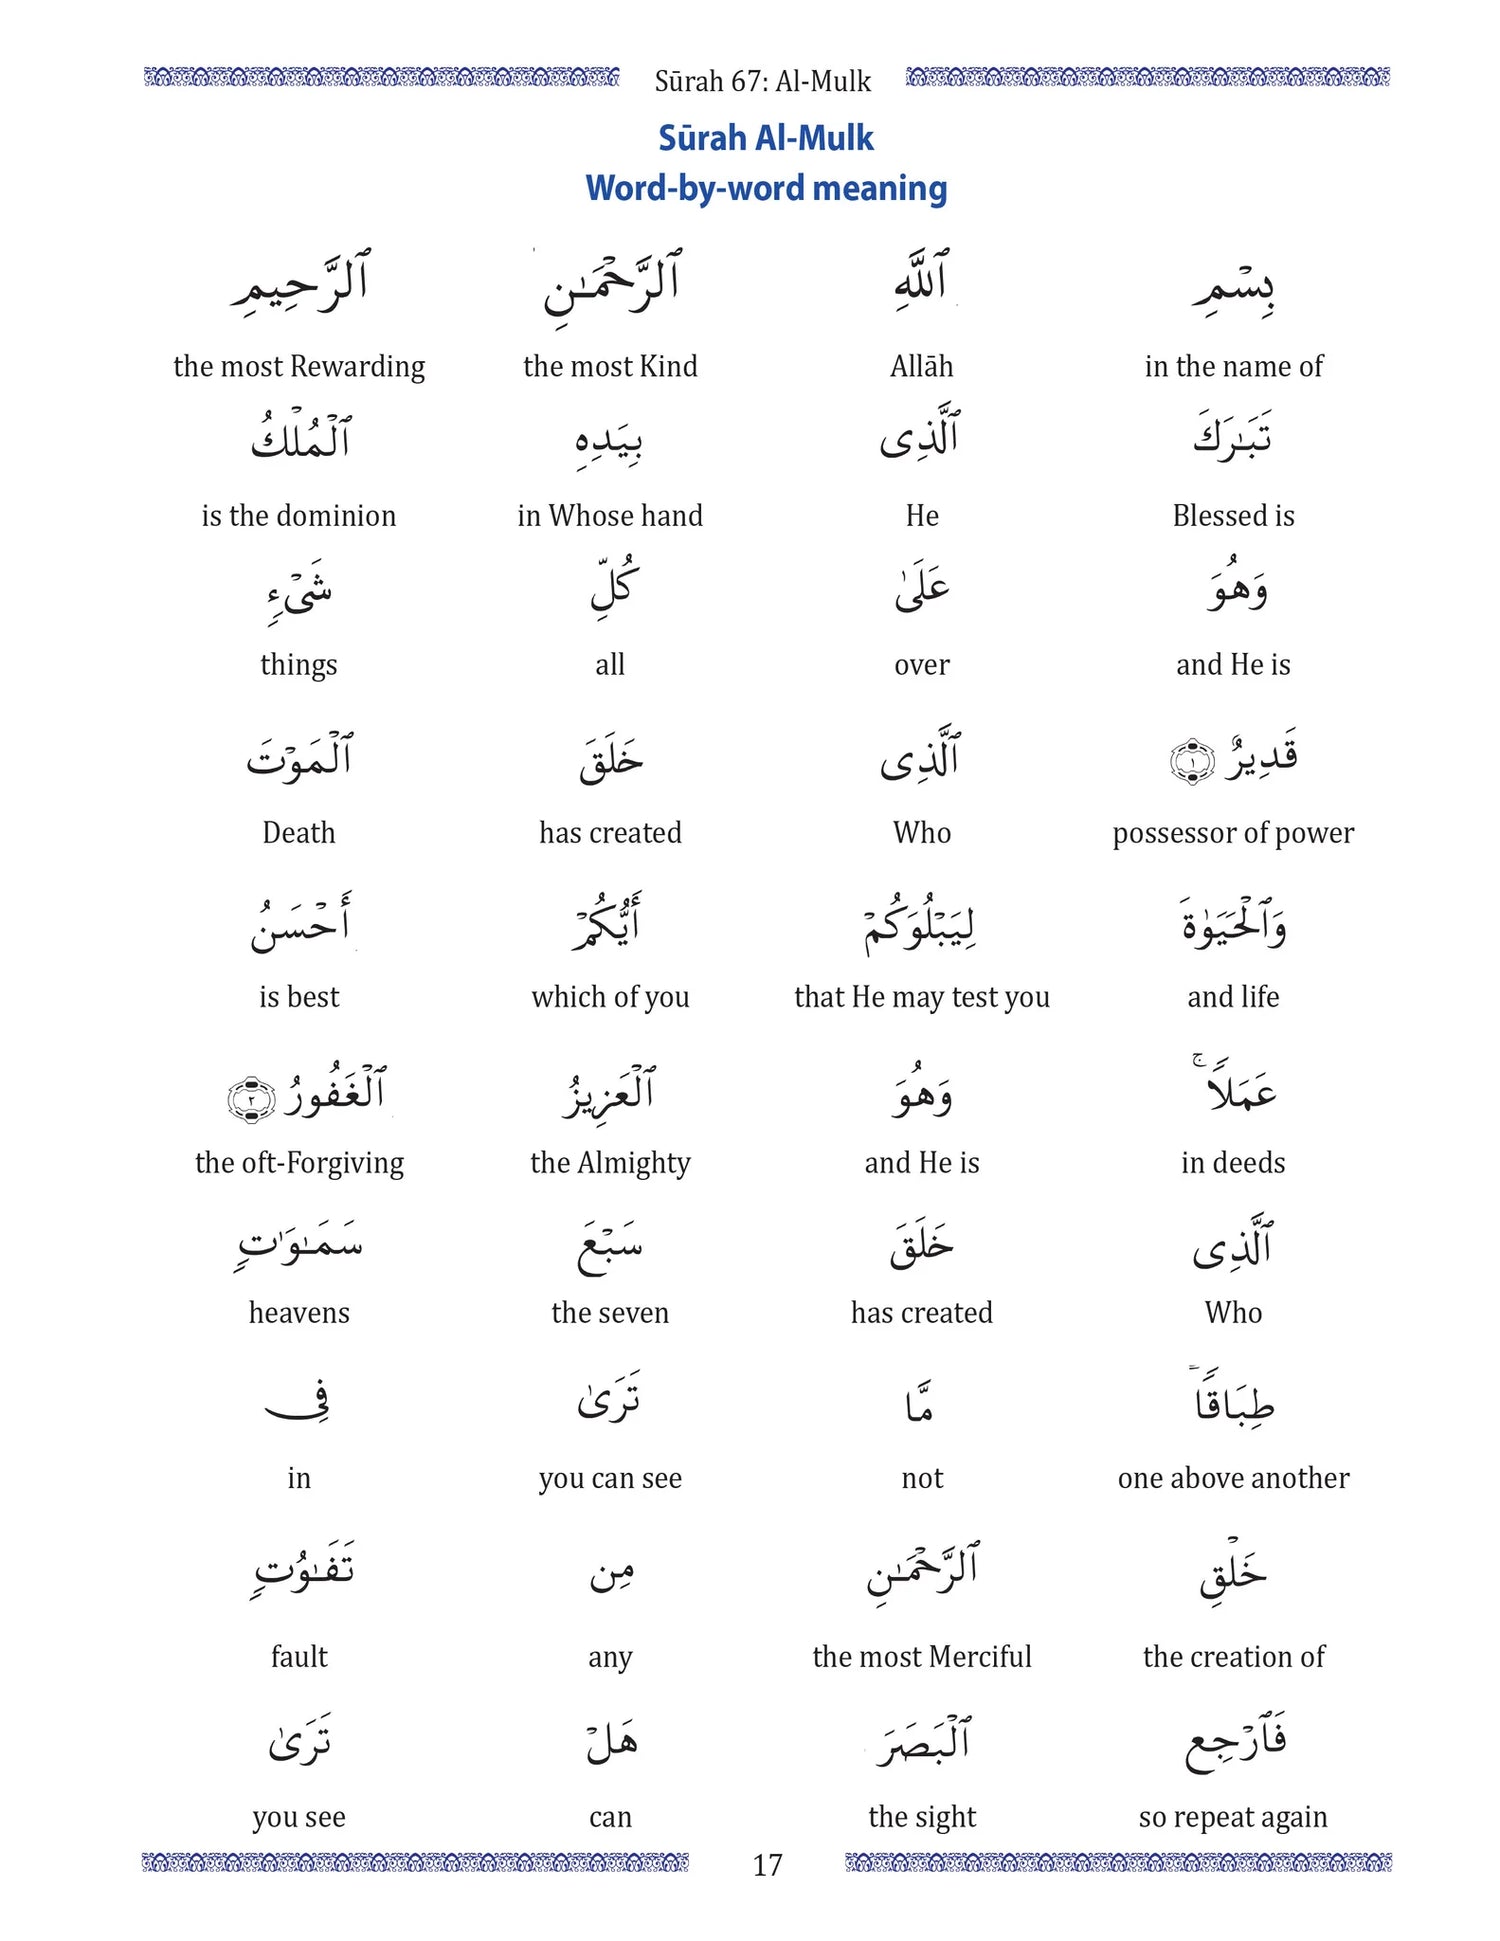 Sūrah 67: Al-Mulk
Sūrah Al-Mulk
Word-by-word meaning
بِسْمِ ٱللَّهِ ٱلرَّحْمَـٰنِ ٱلرَّحِيمِ
in the name of Allāh the most Kind the most Rewarding
تَبَـٰرَكَ ٱلَّذِى بِيَدِهِ ٱلْمُلْكُ
Blessed is He in Whose hand is the dominion
وَهُوَ عَلَىٰ كُلِّ شَىْءٍ
and He is over all things
قَدِيرٌ ١ ٱلَّذِى خَلَقَ ٱلْمَوْتَ
possessor of power Who has created Death
وَٱلْحَيَوٰةَ لِيَبْلُوَكُمْ أَيُّكُمْ أَحْسَنُ
and life that He may test you which of you is best
عَمَلًا ۚ وَهُوَ ٱلْعَزِيزُ ٱلْغَفُورُ ٢
in deeds and He is the Almighty the oft-Forgiving
ٱلَّذِى خَلَقَ سَبْعَ سَمَـٰوَٰتٍ
Who has created the seven heavens
طِبَاقًا ۖ مَّا تَرَىٰ فِى
one above another not you can see in
خَلْقِ ٱلرَّحْمَـٰنِ مِن تَفَـٰوُتٍ
the creation of the most Merciful any fault
فَٱرْجِعِ ٱلْبَصَرَ هَلْ تَرَىٰ
so repeat again the sight can you see
17